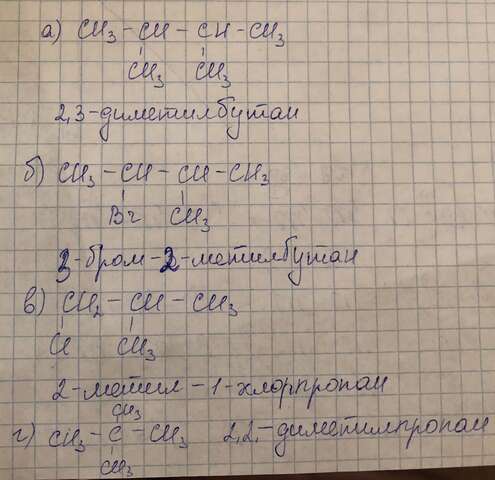 а) CH₃ - CH - CH - CH₃
CH₃ CH₃
2,3-диметилбутан
б) CH₃ - CH - CH - CH₃
Br CH₃
3-бром-2-метилбутан
в) CH₂ - CH - CH₃
Cl CH₃
2-метил-1-хлорпропан
CH₃
г) CH₃ - C - CH₃ 2,2,-диметилпропан
CH₃